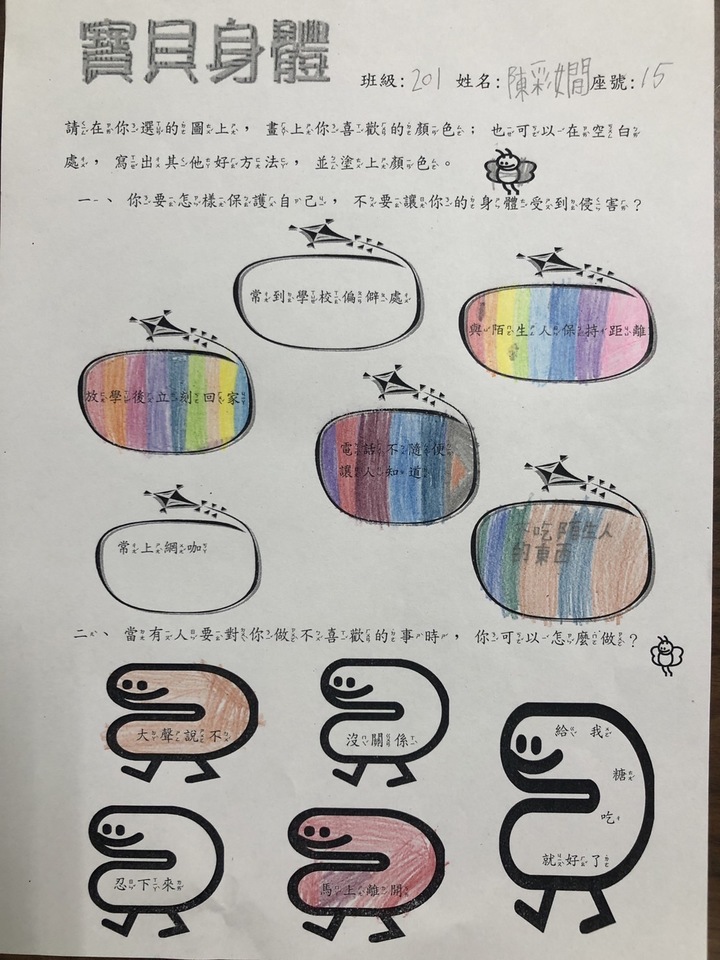 寶貝身體
班級：201 姓名：陳彩嫺 座號：15
請在你選的圖上，畫上你喜歡的顏色；也可以在空白
處，寫出其他好方法，並塗上顏色。
一、你要怎樣保護自己，不要讓你的身體受到侵害？
常到學校偏僻處
與陌生人保持距離
放學後立刻回家
電話不隨便
讓人知道
常上網咖
不吃陌生人
的東西
二、當有人要對你做不喜歡的事時，你可以怎麼做？
大聲說不
沒關係
給我
糖
吃
就好了
忍下來
馬上離開